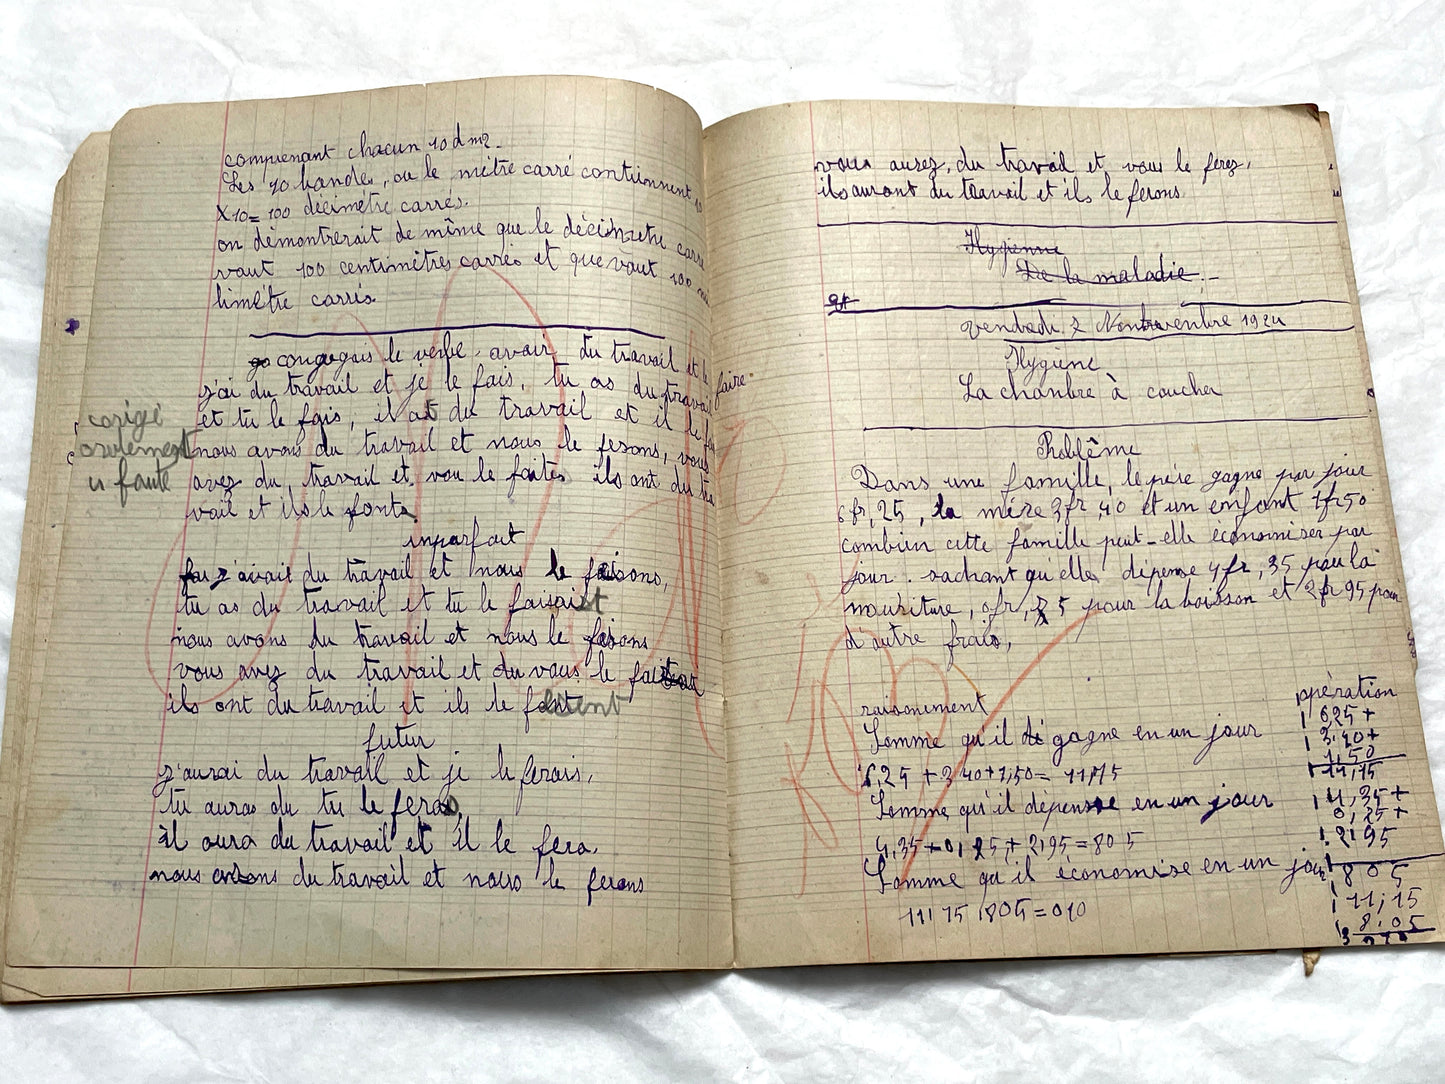 comprenant chacun 10 d m2.
Les 10 bandes, ou le mètre carré contiennent 10
X10 = 100 décimètre carrés.
on démontrerait de même que le décimetre carré
vaut 100 centimètres carrés et que vaut 100 mil
limêtre carrés
congugais le verbe avoir du travail et le faire
j'ai du travail et je le fais, tu as du travail
et tu le fais, il at du travail et il le fai
nous avons du travail et nous le fesons, vous
avez du travail et vou le faites ils ont du tra
vail et ils le fonts
corigé
seulement
u faute
imparfait
j'avait du travail et nous le faisons,
tu as du travail et tu le faisait
nous avons du travail et nous le faisons
vous avez du travail et du vous le
ils ont du travail et ils le
futur
j'aurai du travail et je le ferais,
tu auras du tu le feras,
il aura du travail et il le fera.
nous du travail et nous le ferons
vous aurez, du travail et vous le ferez,
ils auront du travail et ils le ferons.
Hygienne
De la maladie.-
vendredi 7 1924
Hygiène
La chambre à coucher
Problême
Dans une famille, le père gagne par jour
6 fr, 25, la mère 3 fr, 40 et un enfant 1 fr 50
combien cette famille peut-elle économiser par
jour. sachant qu'elle dépense 4 fr, 35 pour la
nouriture, 0 fr, 75 pour la boisson et 2 fr 95 pour
d'autre frais,
raisonement
Somme qu'il gagne en un jour
6,25 + 3,40 + 1,50 = 11,15
Somme qu'il dépense en un jour
4,35 + 0,75 + 2,95 = 8 0 5
Somme qu'il économise en un jour
11,15 805 = 010
opération
625 +
3,40 +
1,50
11,15
4,35 +
0,75 +
2,95
8 0 5
11,15
8,05